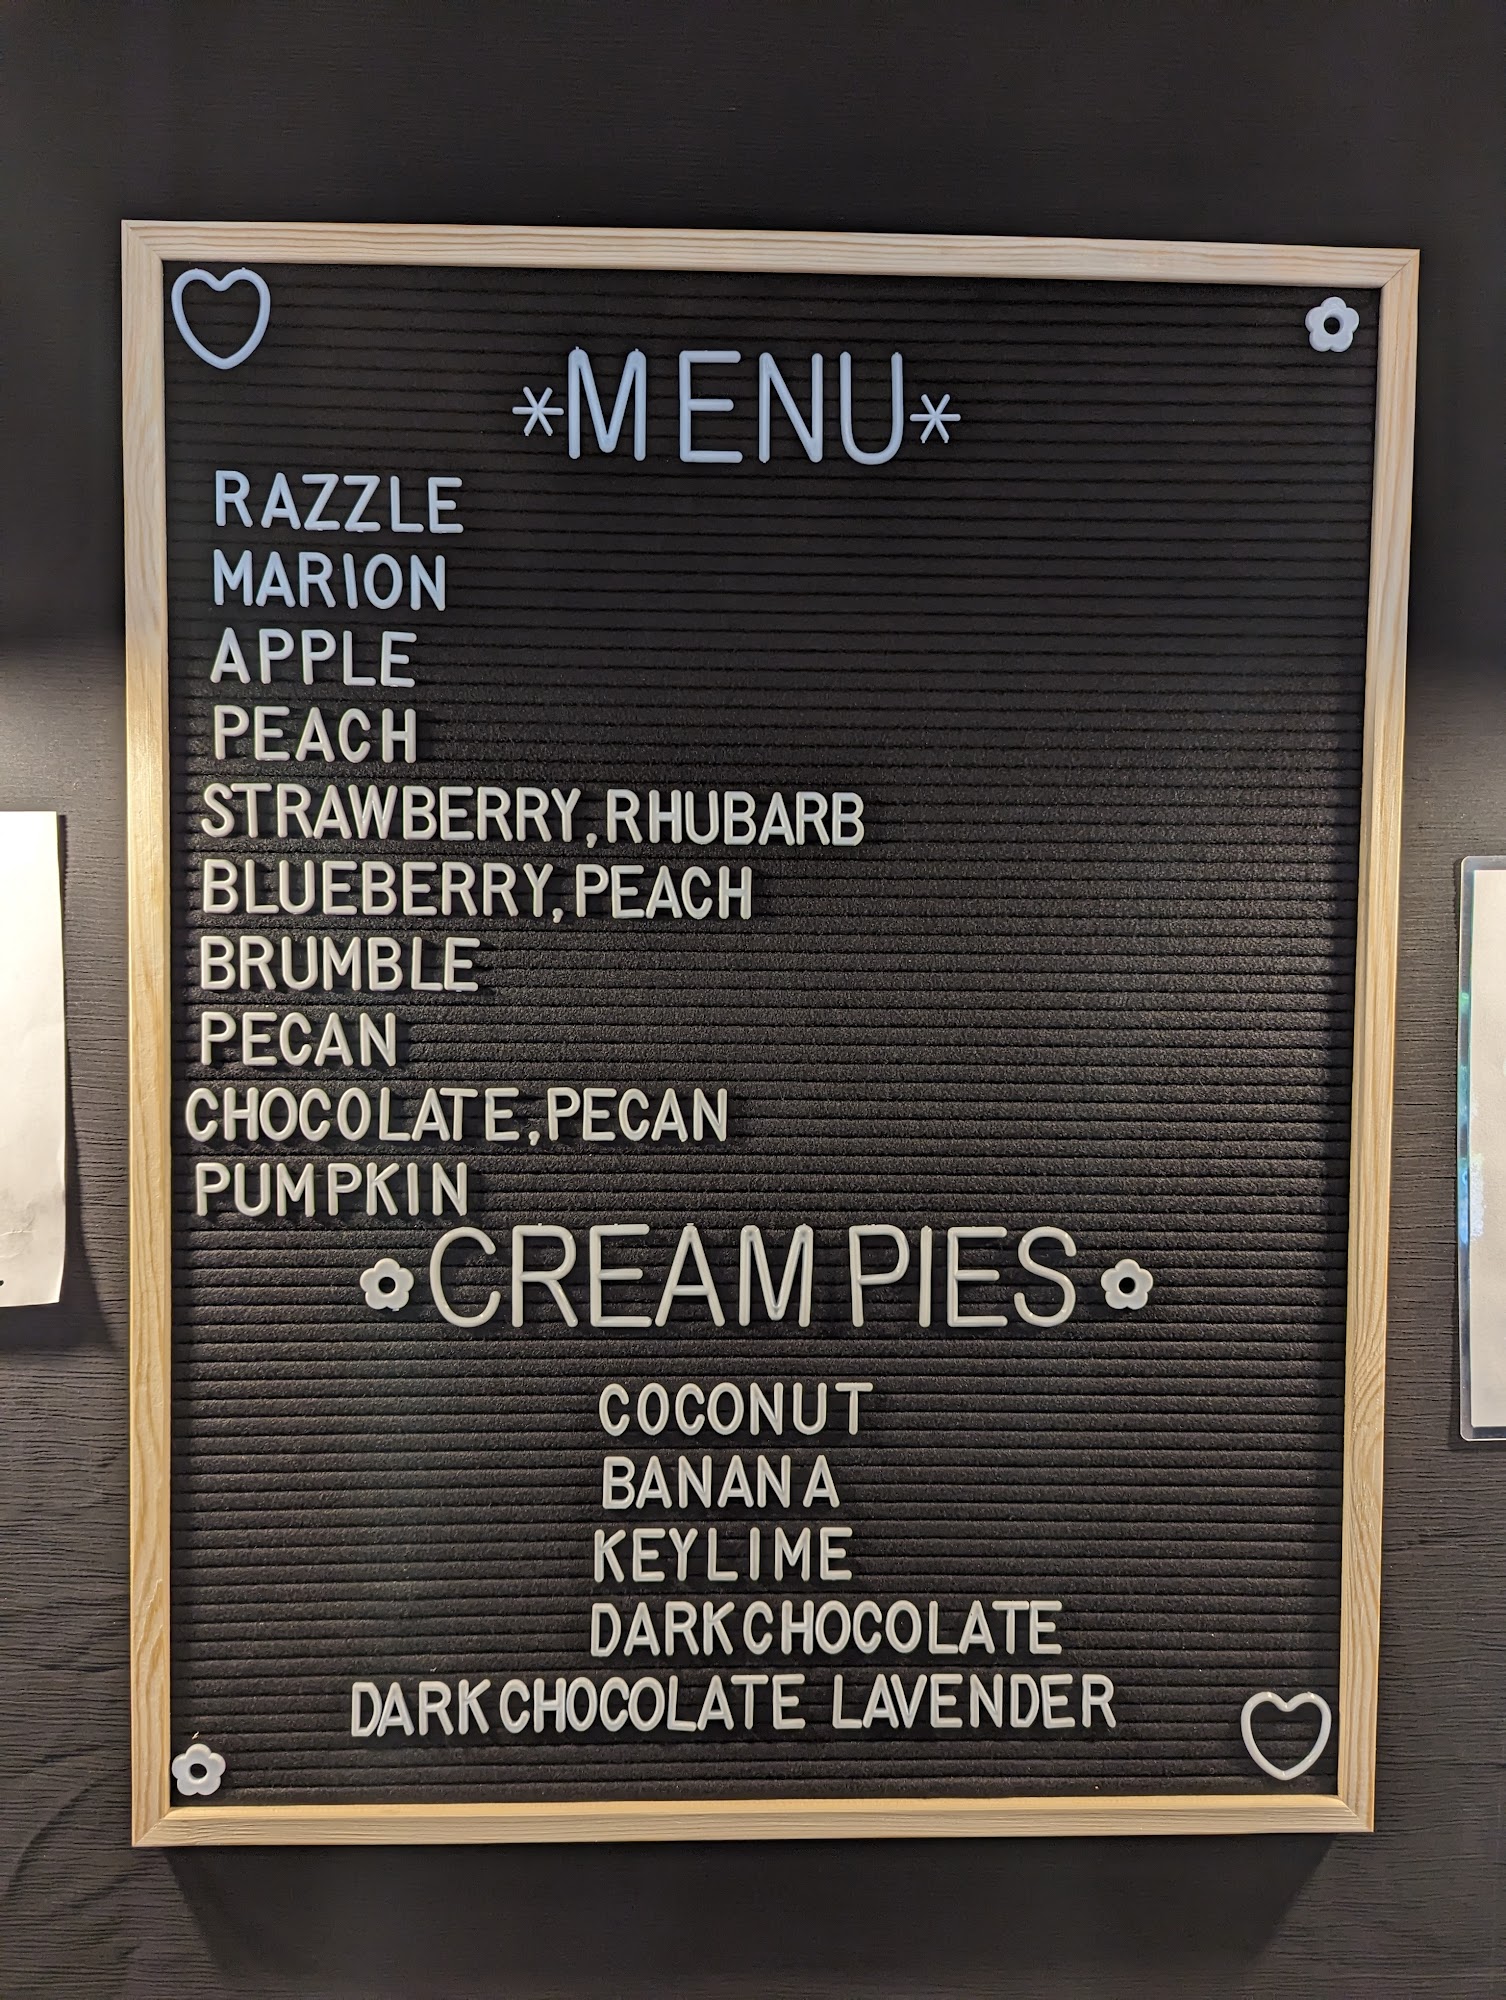 *MENU*
RAZZLE
MARION
APPLE
PEACH
STRAWBERRY,RHUBARB
BLUEBERRY,PEACH
BRUMBLE
PECAN
CHOCOLATE,PECAN
PUMPKIN
CREAM PIES
COCONUT
BANANA
KEYLIME
DARK CHOCOLATE
DARK CHOCOLATE LAVENDER